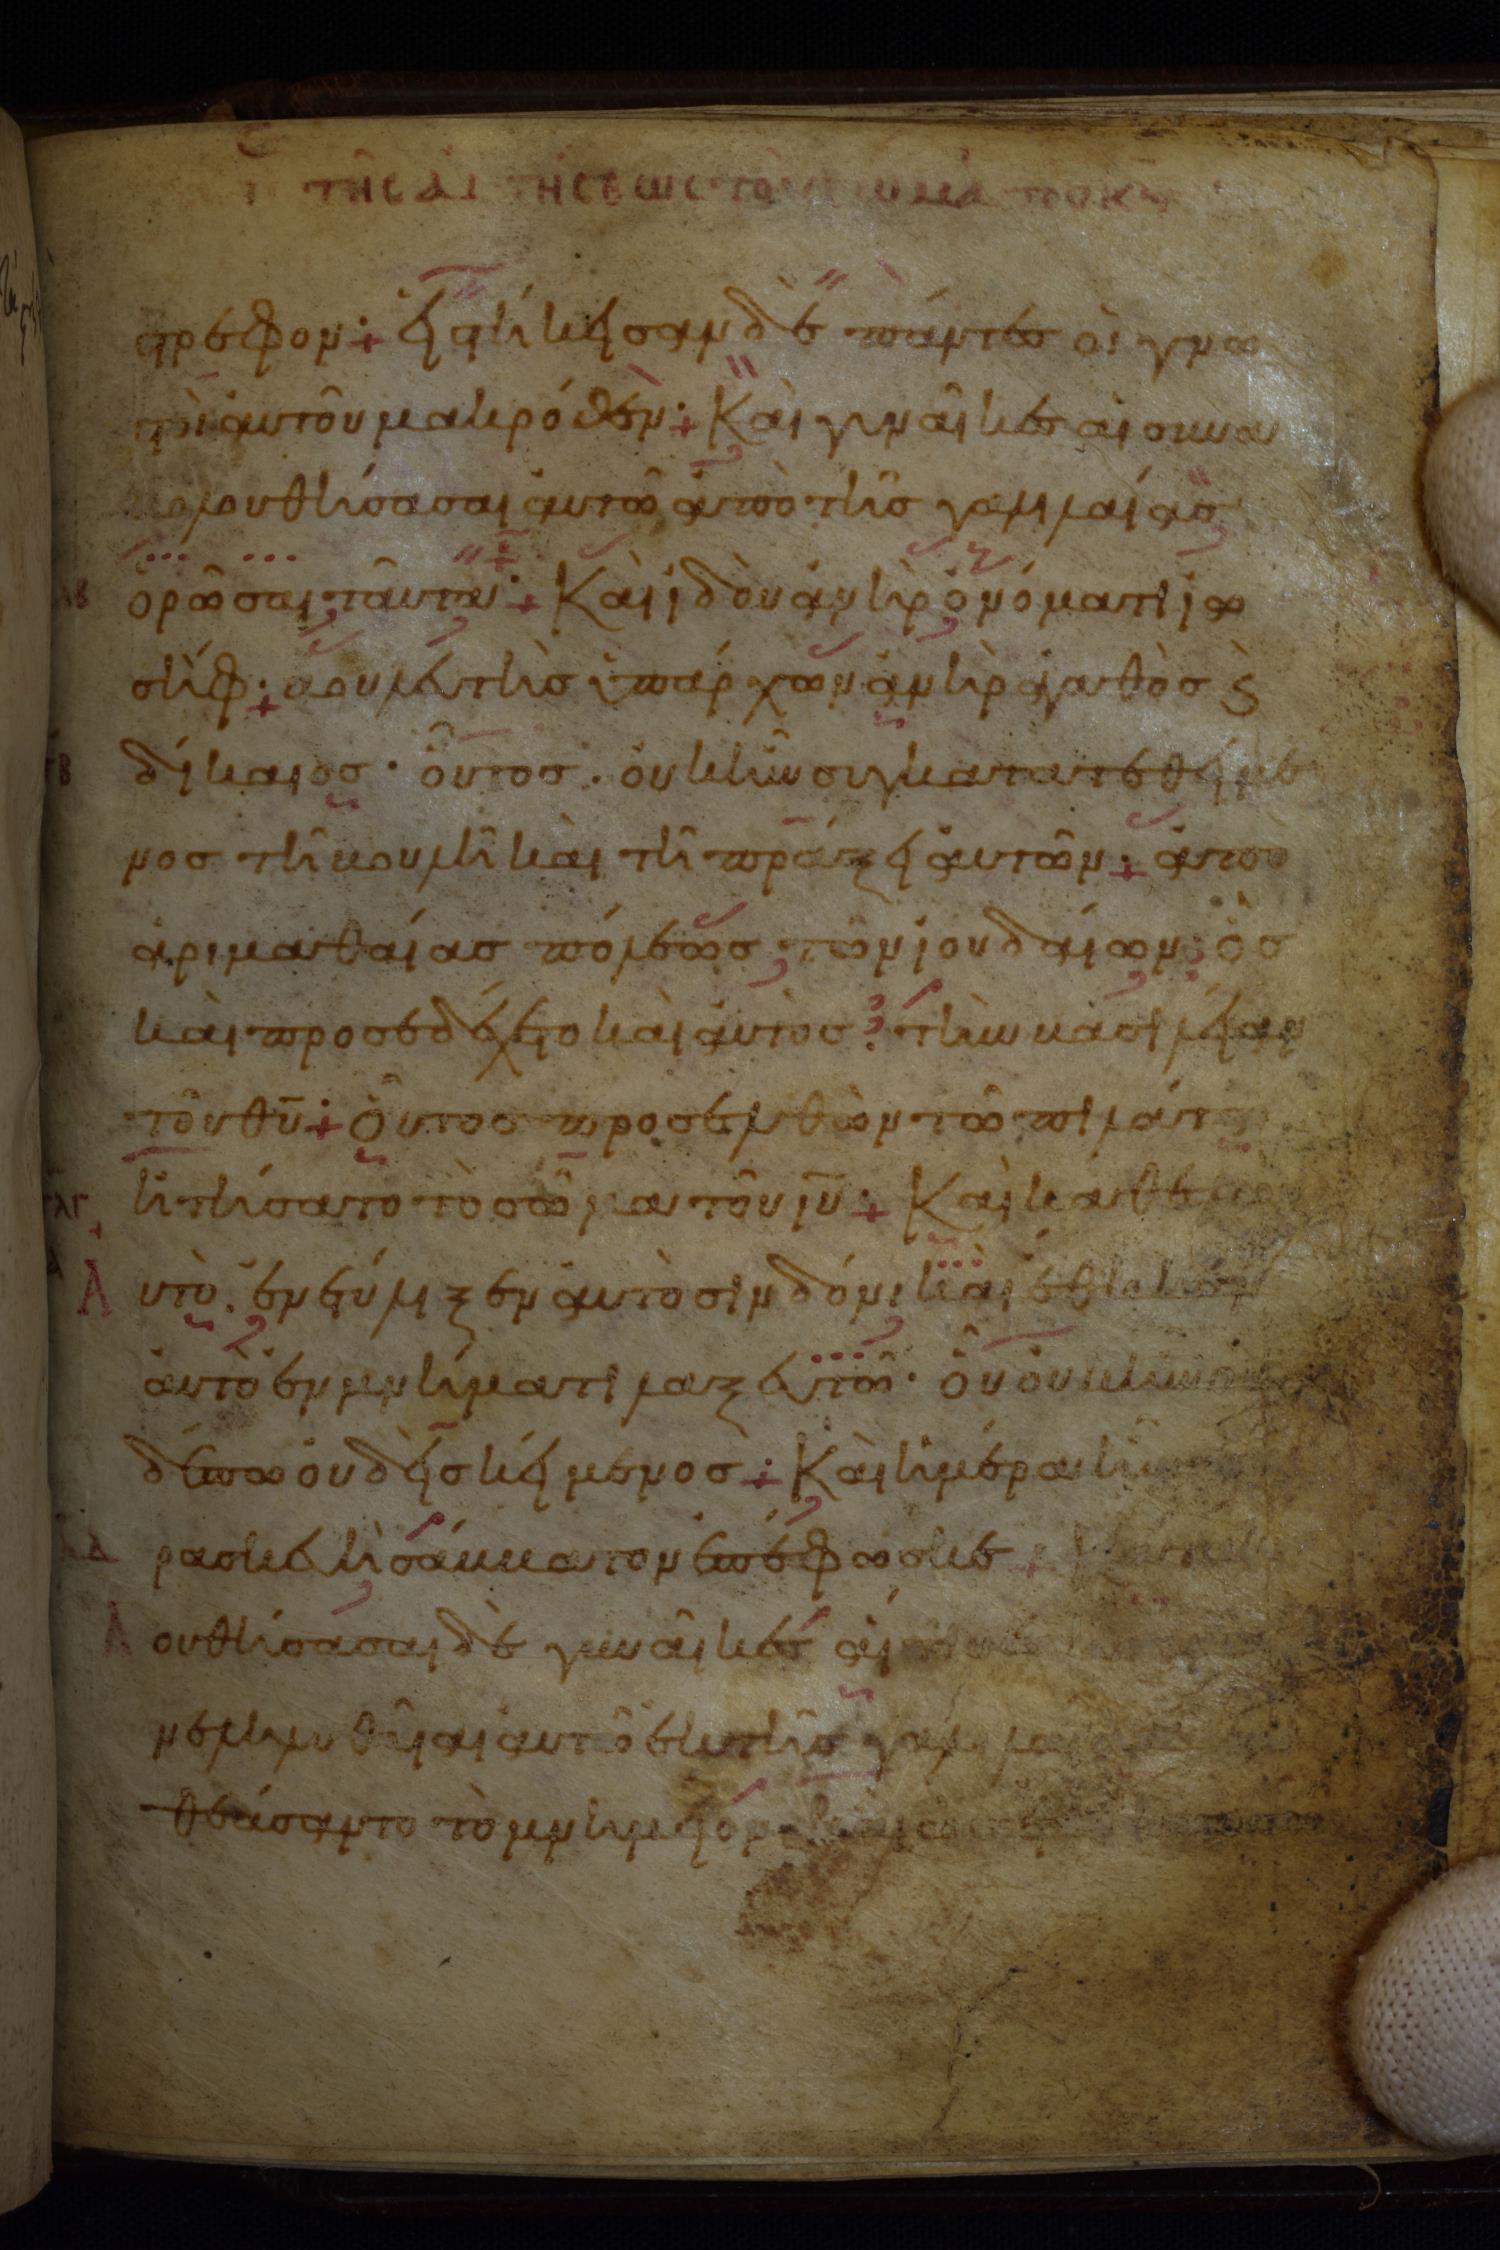 τῆς αἰτήσεως τοῦ σώμα τοῦ κυ
στρεφον· εἱστίκεισαν δὲ πάντες οἱ γνω
στοὶ αὐτοῦ μακρόθεν· Καὶ γυναῖκες αἱ συνα
κολουθήσασαι αὐτῶ ἀπὸ τῆς γαλιλαίας
ὁρῶσαι ταῦτα· Καὶ ἰδοὺ ἀνὴρ ὀνόματι ἰω
σὴφ· βουλευτὴς ὑπάρχων ἀνὴρ ἀγαθὸς ϗ
δίκαιος· οὗτος· οὐκ ἦν συγκατατεθειμέ
νος τῆ βουλῆ καὶ τῆ πράξει αὐτῶν· ἀπο
ἀριμαθαίας πόλεως τῶν ἰουδαίων· ὃς
καὶ προσεδέχετο καὶ αὐτὸς τὴν βασιλείαν
τοῦ θυ· οὗτος προσελθὼν τῶ πιλάτω
ἠτήσατο τὸ σῶμα τοῦ ιυ· Καὶ καθελὼν
αὐτὸ· ἐνετύλιξεν αὐτὸ σινδόνι καὶ ἔθηκεν
αὐτὸ ἐν μνήματι λαξευτῶ· οὗ οὐκ ἦν
δέπω οὐδεὶς κείμενος· Καὶ ἡμέρα ἦν
ρασκευὴ σάββατον ἐπέφωσκε
ουθήσασαι δὲ γυναῖκες αἱ
νεληλυθυῖαι αὐτῶ ἐκ τῆς γαλιλαίας
θεάσαντο τὸ μνημεῖον καὶ ὡς ἐτέθη